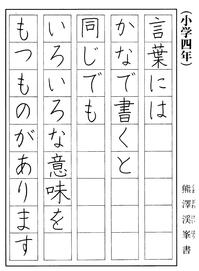 （小学四年）
言葉には
かなで書くと
同じでも
いろいろな意味を
もつものがあります
熊澤渓峯書